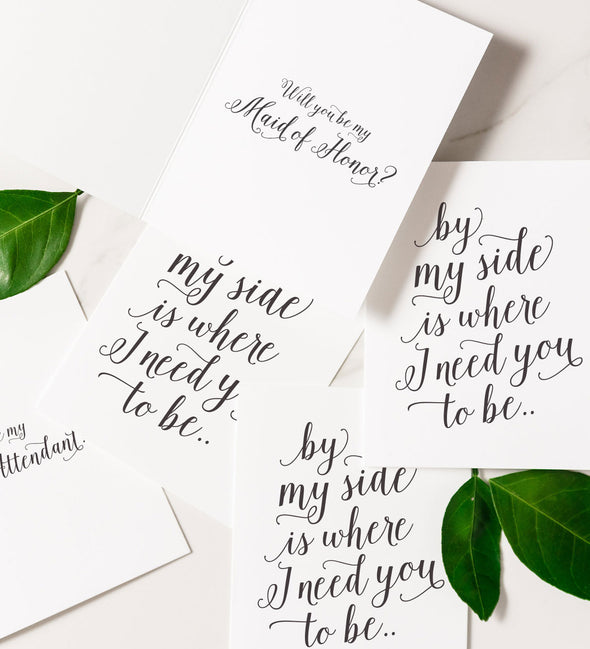 Will you be my
Maid of Honor?
my side
is where
I need y
to be..
by
my side
is where
I need you
to be..
my
Attendant.
by
my side
is where
I need you
to be..